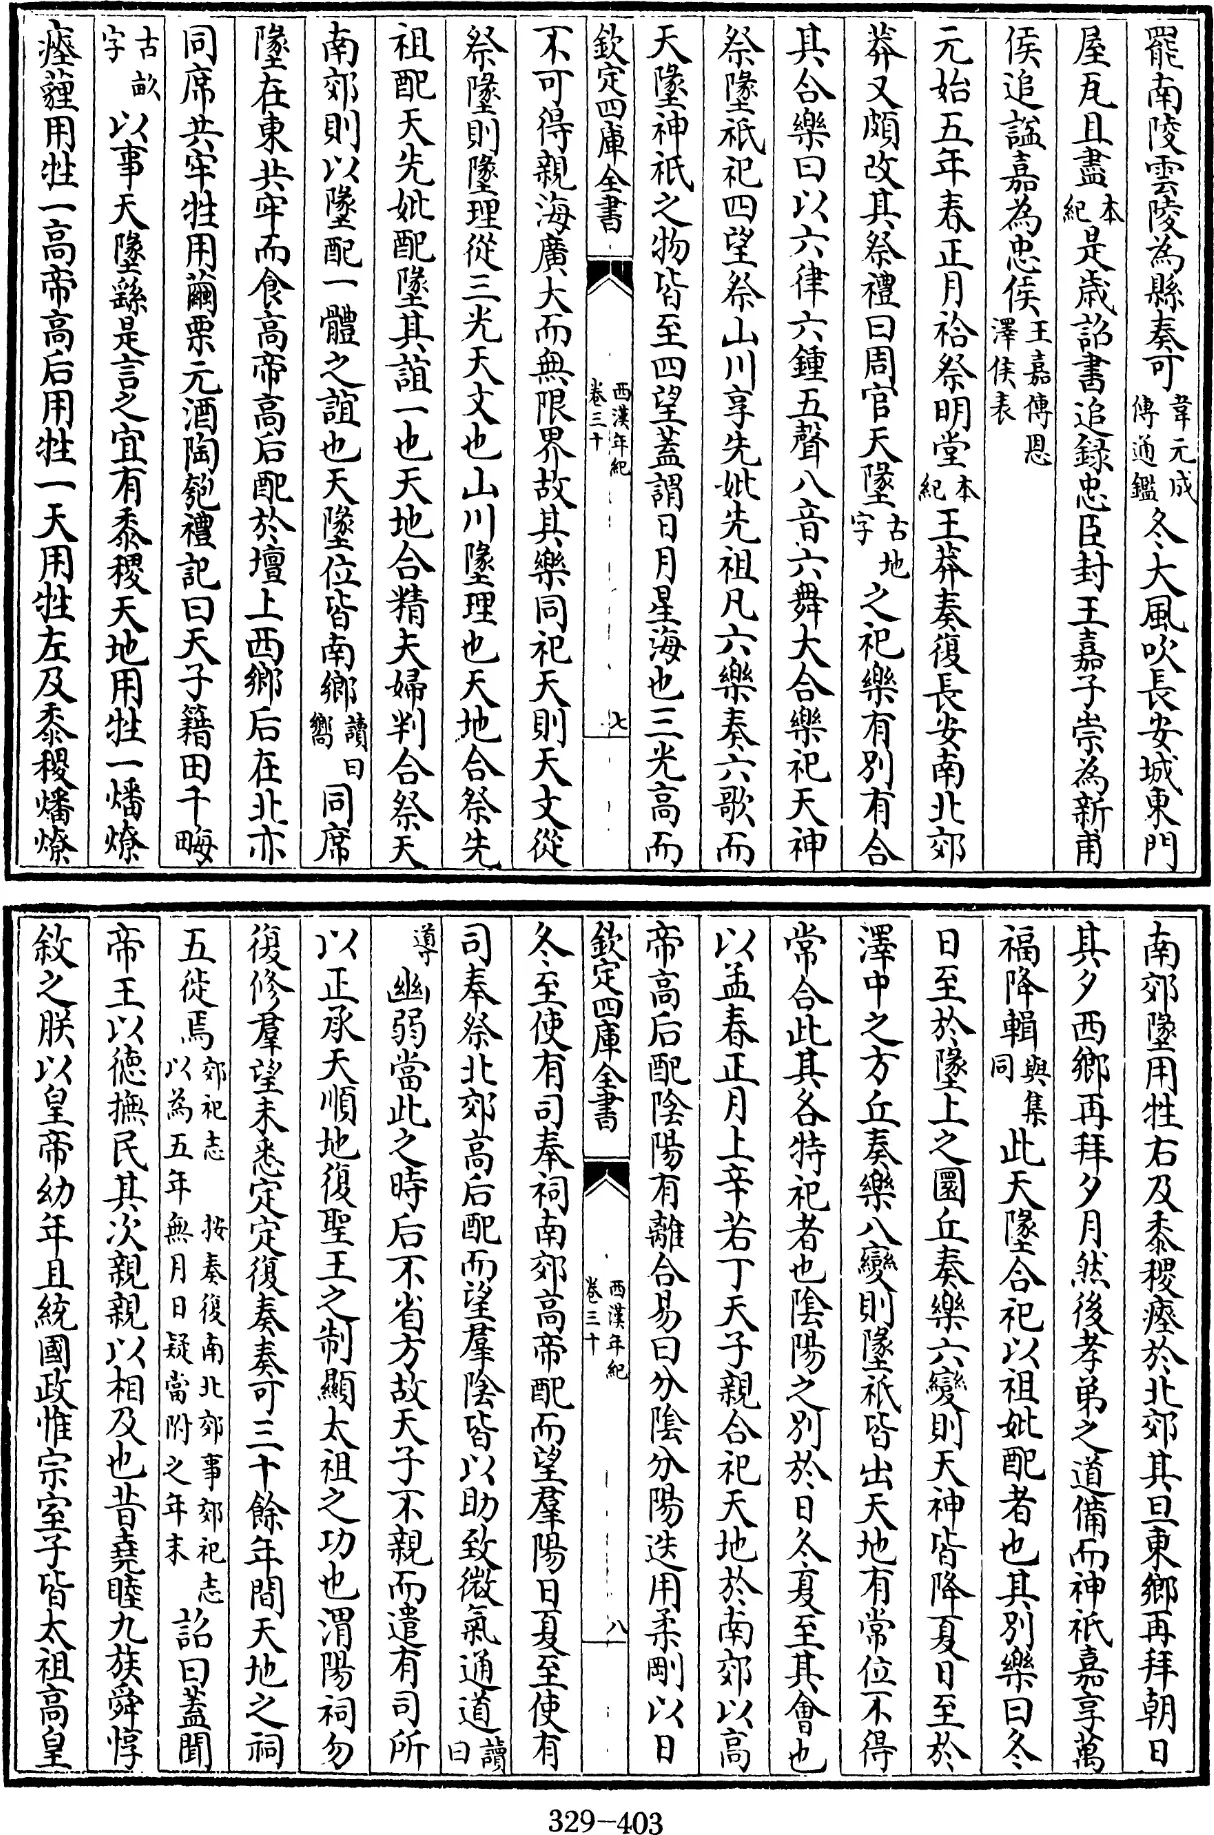 罷南陵雲陵為縣奏可韋元成傳通鑑冬大風吹長安城東門
屋瓦且盡本紀是歳詔書追録忠臣封王嘉子崇為新甫
侯追諡嘉為忠侯王嘉傳恩澤侯表
元始五年春正月祫祭明堂本紀王莽奏復長安南北郊
莽又頗改其祭禮曰周官天墬古地字之祀樂有別有合
其合樂曰以六律六鍾五聲八音六舞大合樂祀天神
祭墬祇祀四望祭山川享先妣先祖凡六樂奏六歌而
天墬神祇之物皆至四望蓋謂日月星海也三光高而
欽定四庫全書 西漢年紀卷三十 七
不可得親海廣大而無限界故其樂同祀天則天文從
祭墬則墬理從三光天文也山川墬理也天地合祭先
祖配天先妣配墬其誼一也天地合精夫婦判合祭天
南郊則以墬配一體之誼也天墬位皆南鄉讀曰嚮同席
墬在東共牢而食高帝高后配於壇上西鄉后在北亦
同席共牢牲用繭栗元酒陶匏禮記曰天子籍田千畮
古畝字以事天墬繇是言之宜有黍稷天地用牲一燔燎
瘞薶用牲一高帝高后用牲一天用牲左及黍稷燔燎
南郊墬用牲右及黍稷瘞於北郊其旦東鄉再拜朝日
其夕西鄉再拜夕月然後孝弟之道備而神祇嘉享萬
福降輯與集同此天墬合祀以祖妣配者也其別樂曰冬
日至於墬上之圜丘奏樂六變則天神皆降夏日至於
澤中之方丘奏樂八變則墬祇皆出天地有常位不得
常合此其各特祀者也陰陽之別於日冬夏至其會也
以孟春正月上辛若丁天子親合祀天地於南郊以高
帝高后配陰陽有離合易曰分陰分陽迭用柔剛以日
欽定四庫全書 西漢年紀卷三十 八
冬至使有司奉祠南郊高帝配而望羣陽日夏至使有
司奉祭北郊高后配而望羣陰皆以助致微氣通道讀曰
導幽弱當此之時后不省方故天子不親而遣有司所
以正承天順地復聖王之制顯太祖之功也渭陽祠勿
復修羣望未悉定定復奏奏可三十餘年間天地之祠
五徙焉郊祀志 按奏復南北郊事郊祀志以為五年無月日疑當附之年末詔曰蓋聞
帝王以德撫民其次親親以相及也昔堯睦九族舜惇
敘之朕以皇帝幼年且統國政惟宗室子皆太祖高皇
329-403